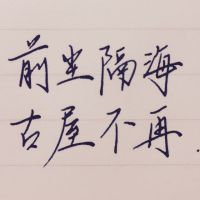 前尘隔海
古屋不再.